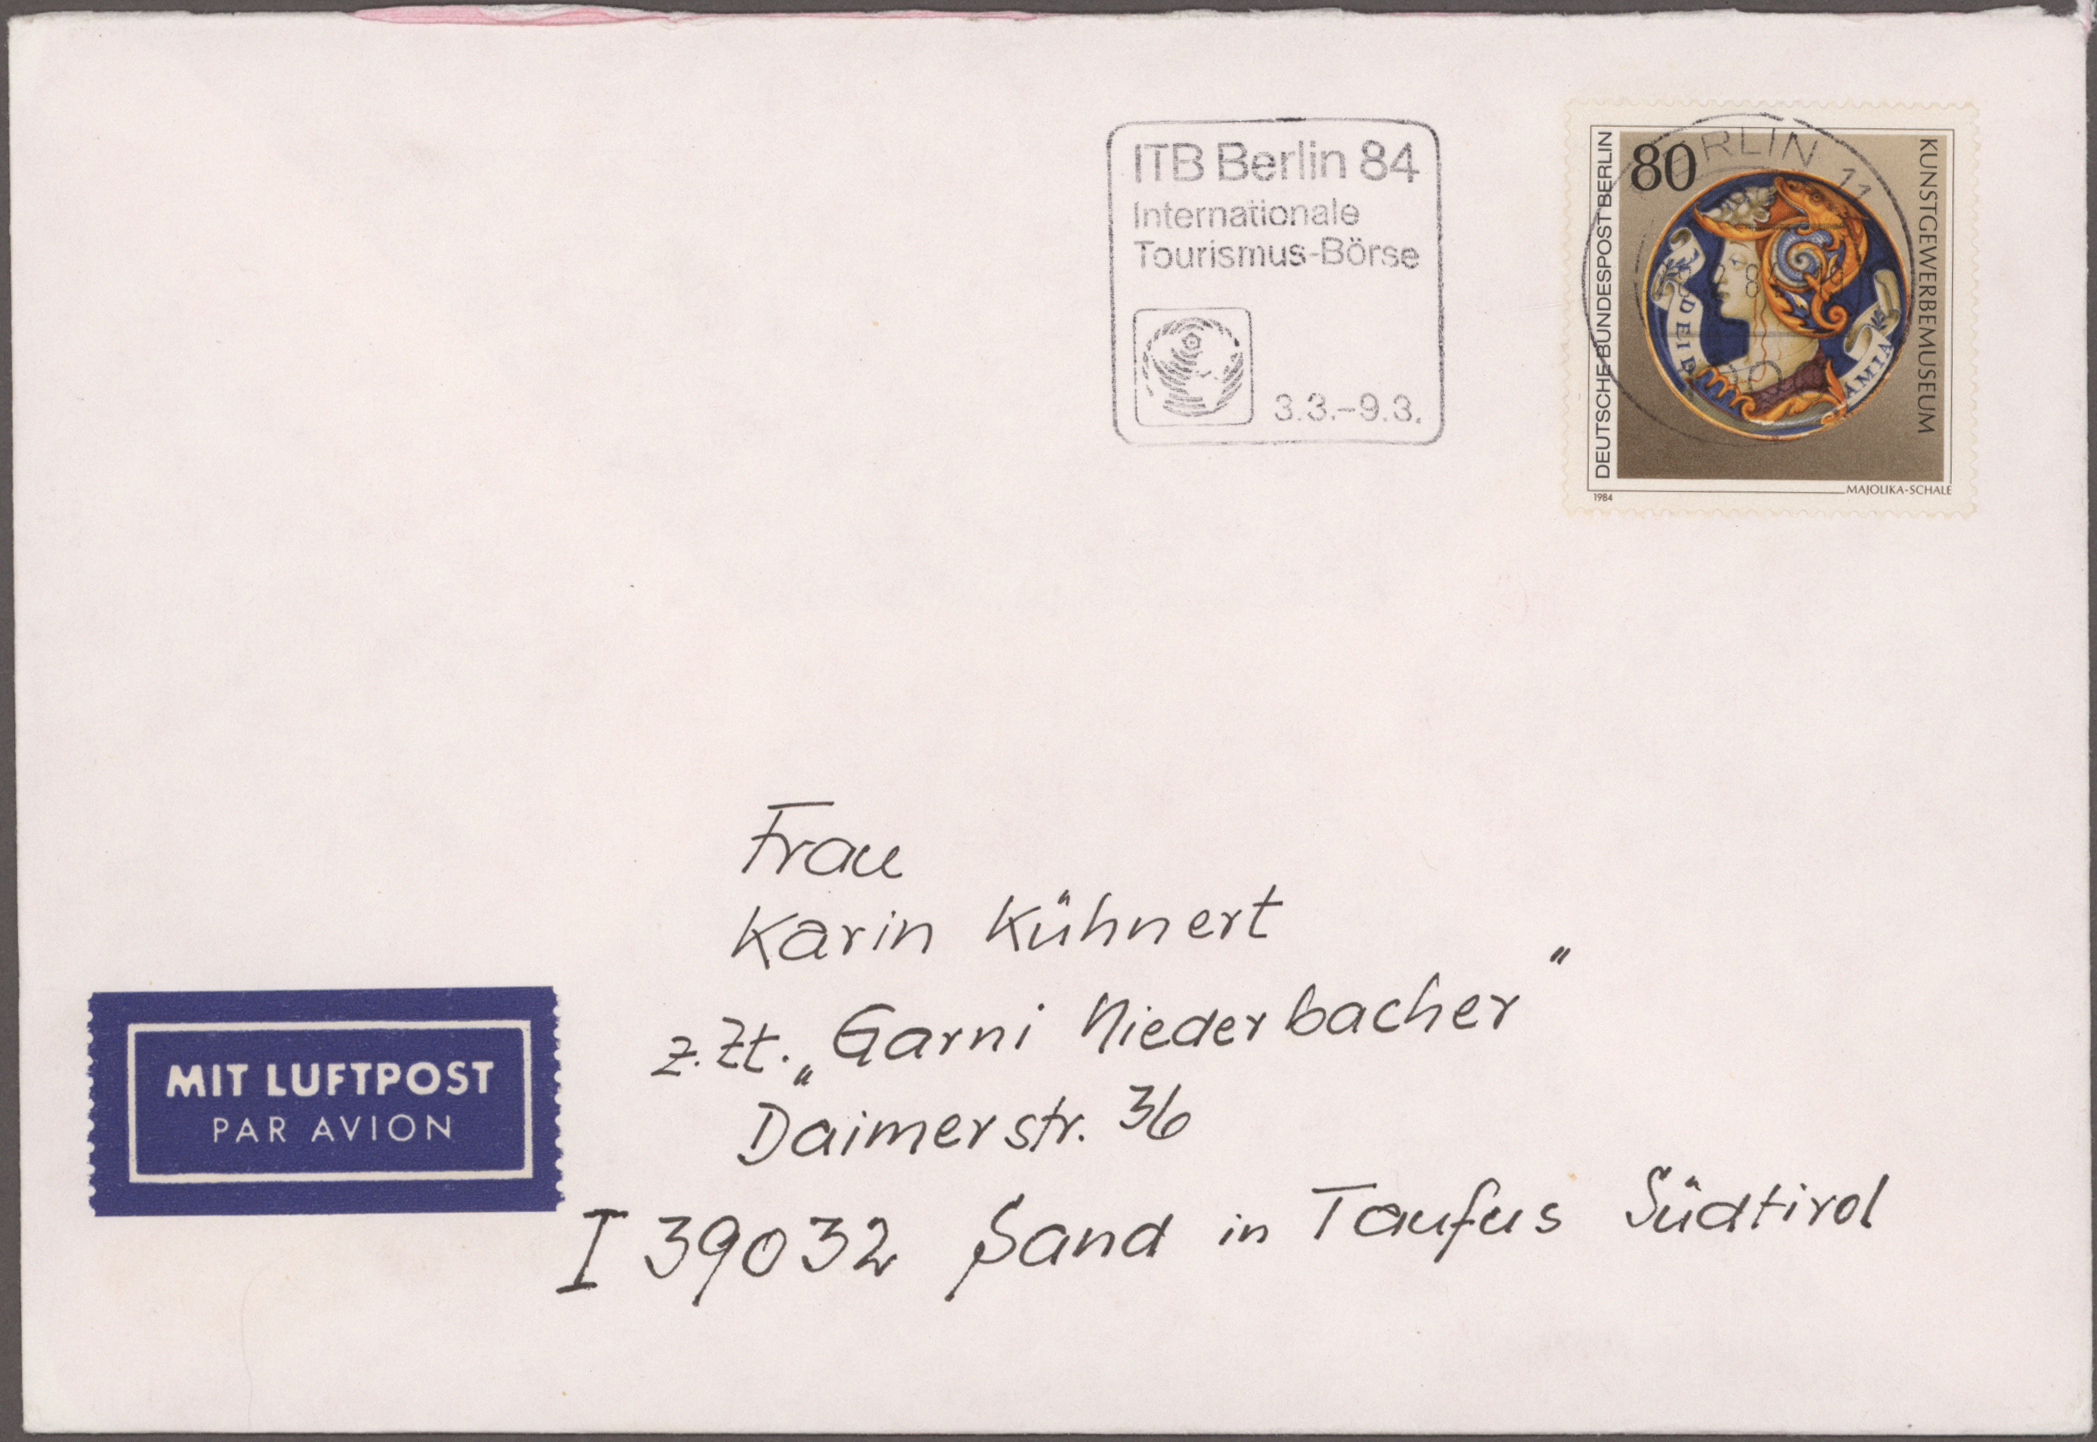 ITB Berlin 84
Internationale
Tourismus-Börse
3.3.-9.3.
DEUTSCHE BUNDESPOST BERLIN
80
KUNSTGEWERBEMUSEUM
1984
MAJOLIKA-SCHALE
Frau
Karin Kühnert
z.Zt. „Garni Niederbacher"
Daimerstr. 36
I 39032 Sand in Taufus Südtirol
MIT LUFTPOST
PAR AVION